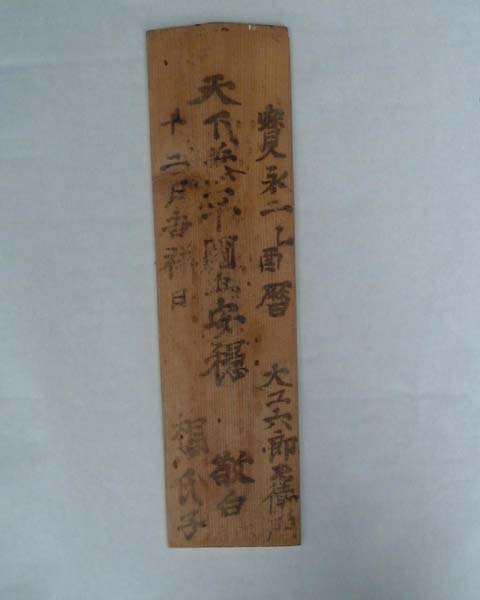 寳永二乙酉暦 大工六郎左衛門
天下泰平國土安穏 敬白
十二月吉祥日 惣氏子